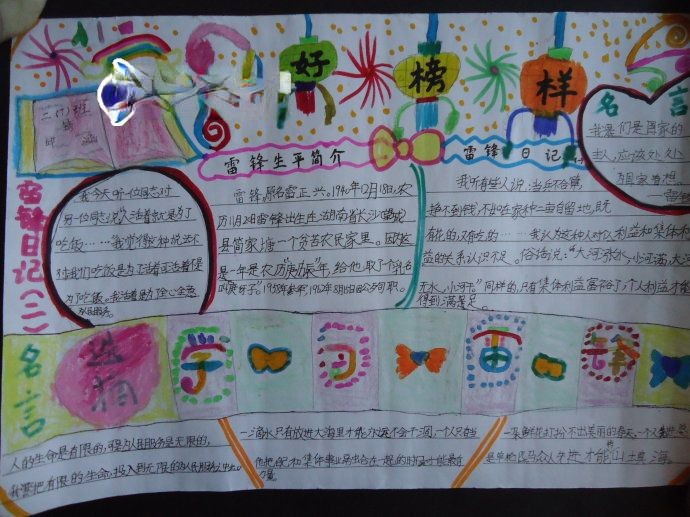 好榜样
二(7)班
名言
我们是国家的
主人,应该处处
为国家着想
雷锋生平简介
雷锋日记
雷锋日记(二)
我今天听一位同志对
另一位同志说:"人活着就是为了
吃饭……"我觉得这种说法不
对我们吃饭是为了活着可活着不是
为了吃饭。我活着是为了全心全意
为人民服务。
雷锋,原名雷正兴。1940年12月18日,农
历11月20雷锋出生在湖南省长沙望城
县简家塘一个贫苦农民家里。因这
一年是农历"庚辰"年,给他取了个乳名
叫"庚伢子"。
我听有些人说:当兵不合算,
挣不到钱,不如在家种二亩自留地,既
有花的,又有吃的……我认为这种人对个人利益和集体利
益的关系认识不足。俗话说:"大河有水,小河满,大河
无水,小河干。"同样的,只有集体利益富裕了,个人利益才能
得到满足。
名言
学习雷锋
人的生命是有限的,可是为人民服务是无限的,
我要把有限的生命,投入到无限的为人民服务之中去。
一滴水只有放进大海里才能永远不会干涸,一个人只有当
他把自己和集体事业融合在一起的时候才能最有
力量。
一朵鲜花打扮不出美丽的春天,一个人先进
是单枪匹马众人先进才能山填海。